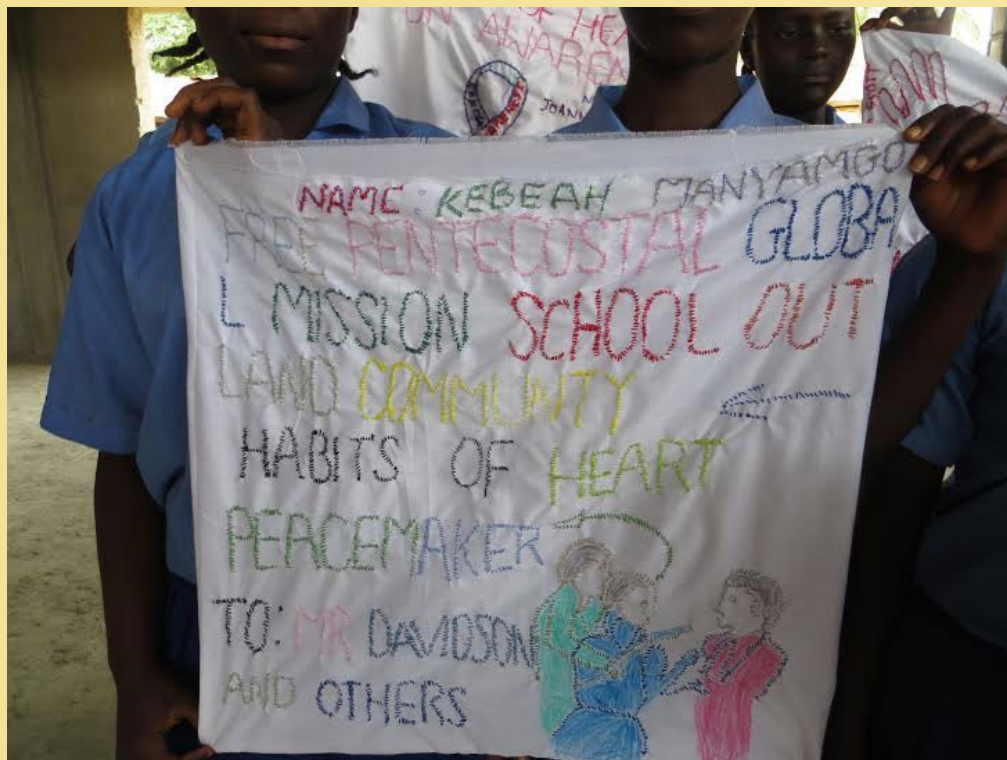 ON OF HEA
AWAREN
AWARENESS
JOANN
NAME: KEBEAH MANYAMGO
FREE PENTECOSTAL GLOBA
L MISSION SCHOOL OUT
LAND COMMUNITY
HABITS OF HEART
PEACEMAKER
TO: MR DAVIDSON
AND OTHERS